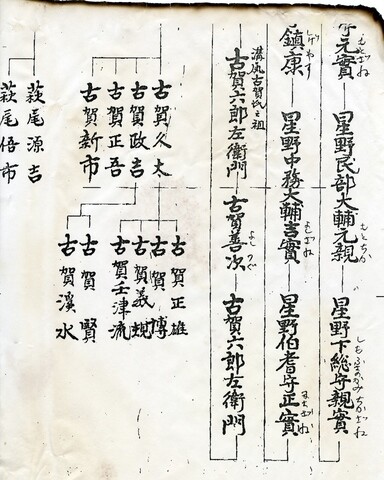 元實 もとざね
星野民部大輔元親 もとちか
星野下総守親實 しもふさのかみちかざね
鎮康 しげやす
星野中務大輔吉實 よしざね
星野伯耆守正實 まさざね
溝尻古賀氏之祖
古賀六郎左衛門
古賀善次 よしつぐ
古賀六郎左衛門
古賀久太
古賀政吉
古賀正吾
古賀新市
古賀正雄
古賀博
古賀義規
古賀壬津流
古賀賢
古賀溪水
萩尾源吉
萩尾倍市